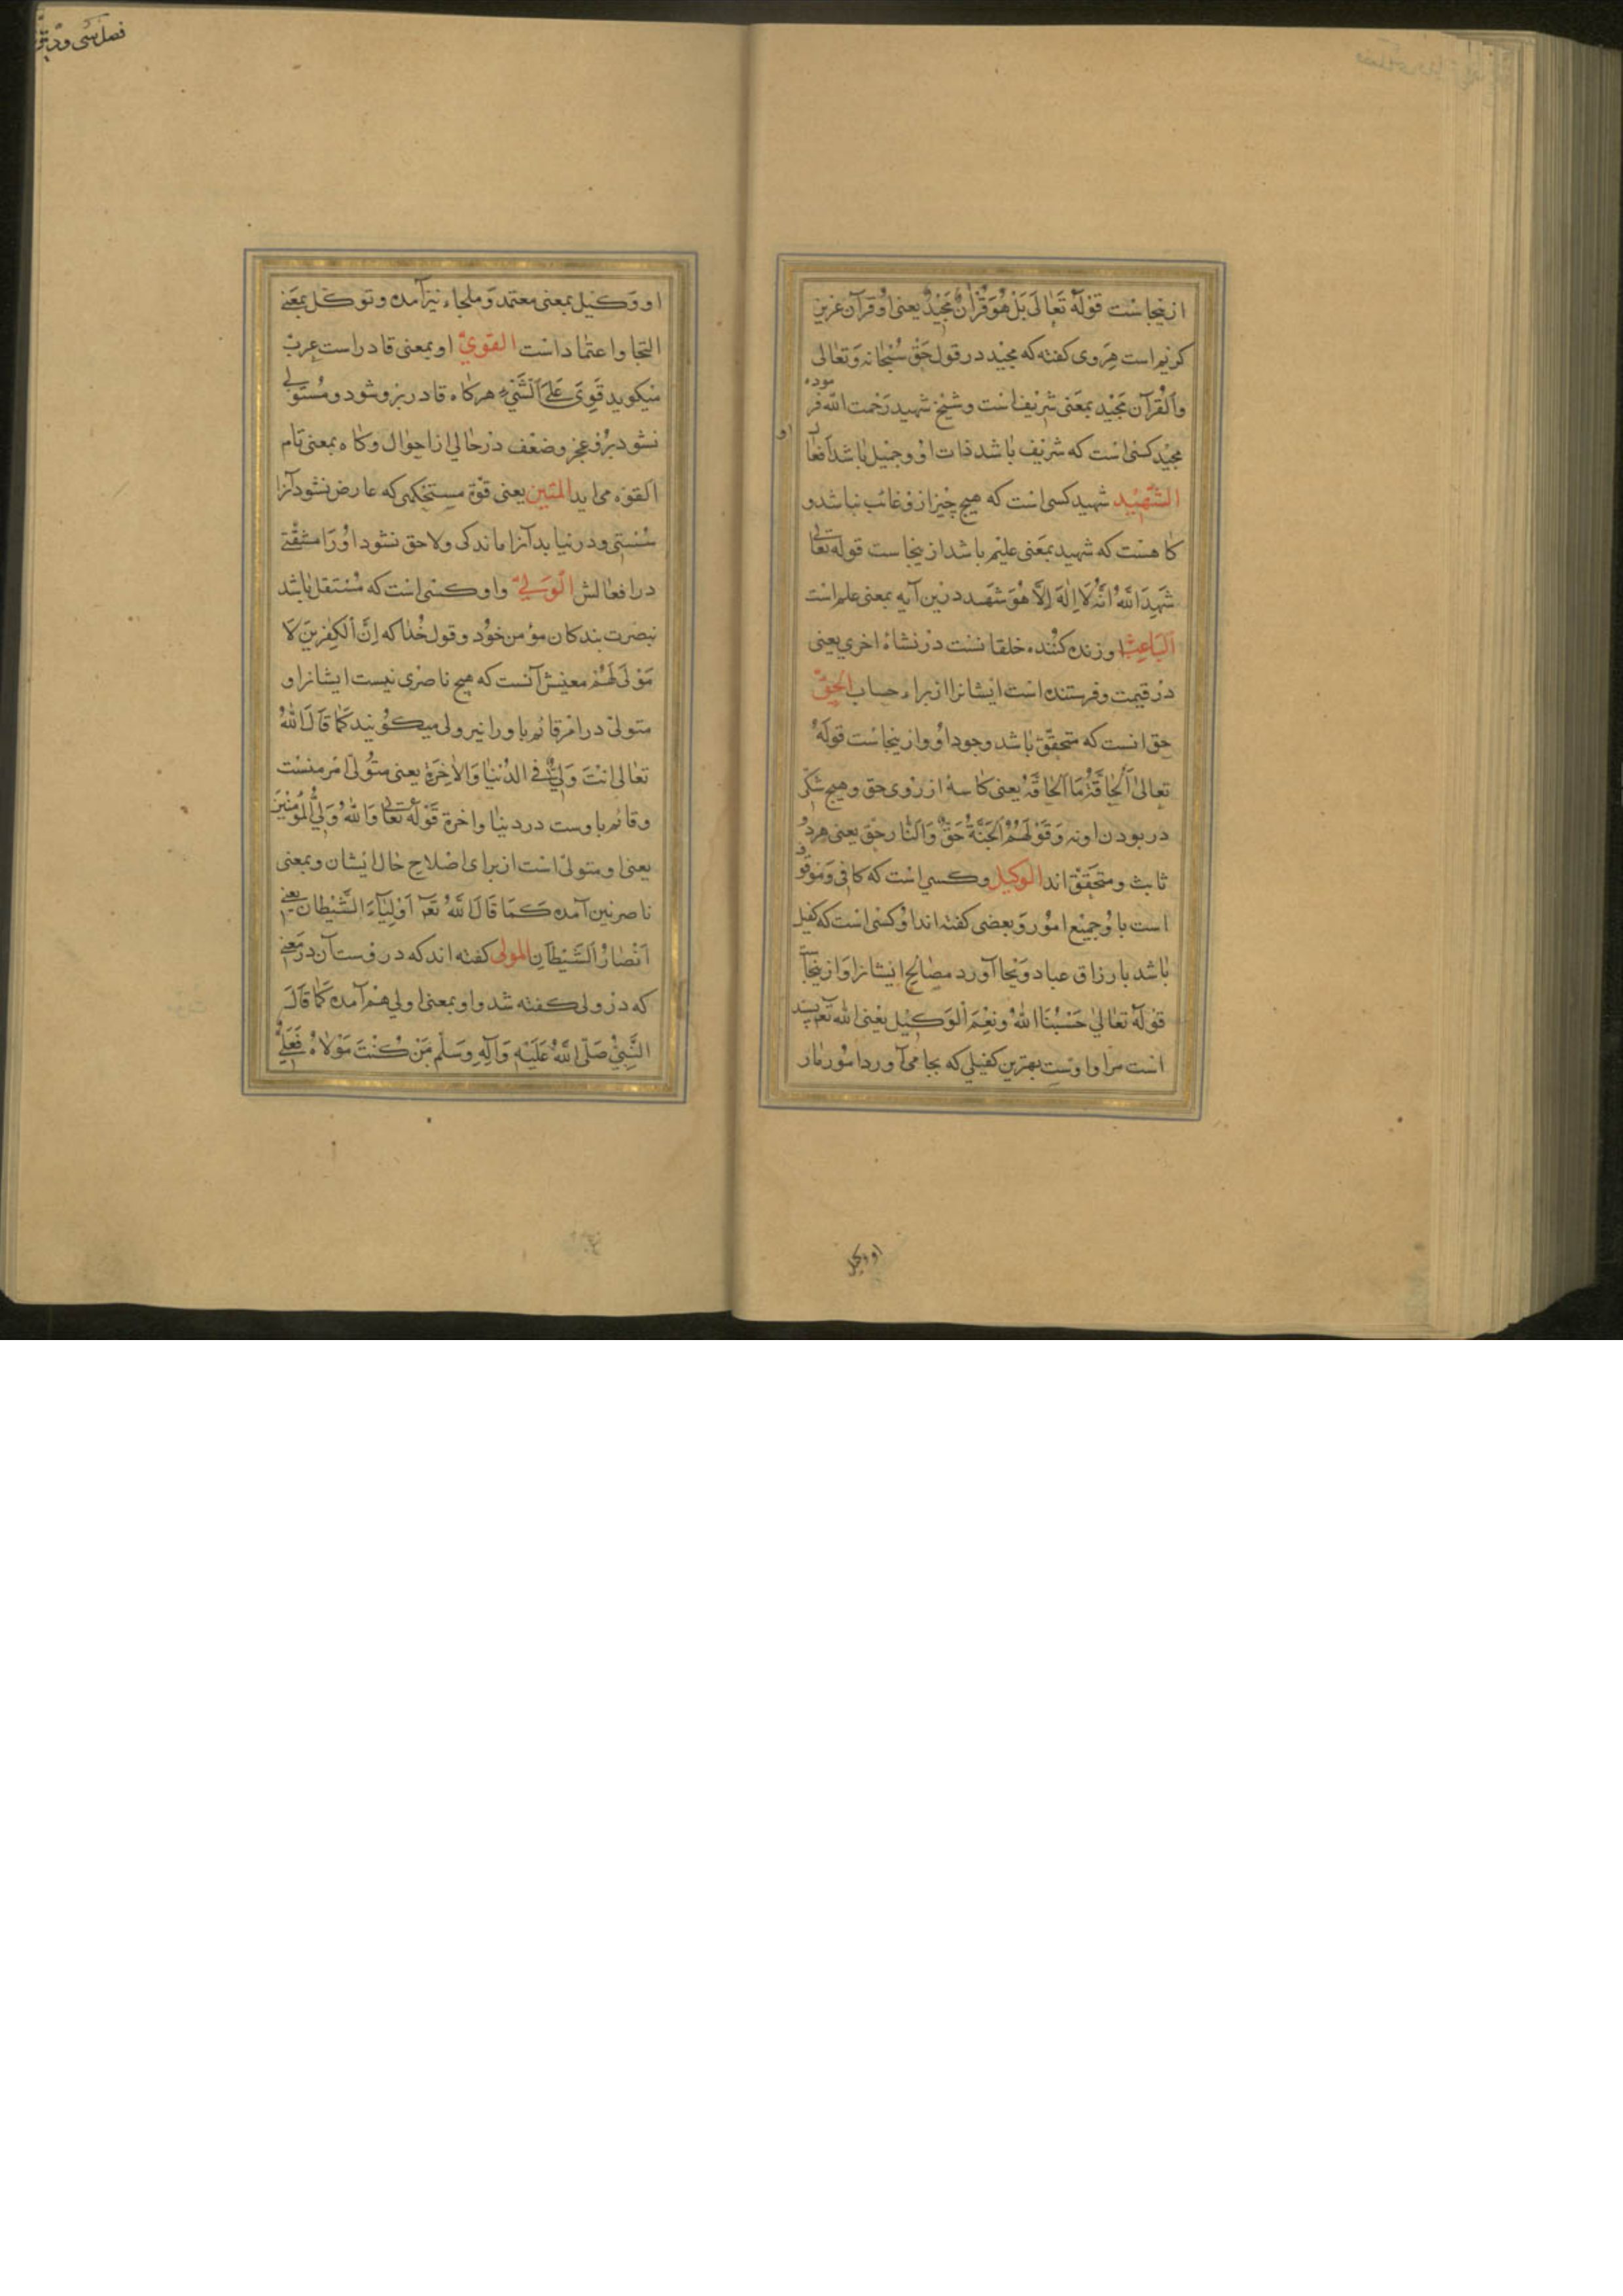 ازینجاست قوله تَعٰالَی بَلْ هُوَ قُرْاٰنٌ مَجٖیْدٌ یعنی او قرآن عزیز
کریم است هروی کفته که مجید در قول حق سُبْحٰانَه وَتَعٰالی
والْقُرآن مَجٖیْد بمعنی شریف است و شیخ شهید رَحْمت اللّه فر
موده
مجید کسی است که شریف باشد ذات او و جمیل باشد افعا
ل او
الشَّهٖیْد شهید کسی است که هیچ چیز ازو غائب نباشد و
کاهست که شهید بمعنی علیم باشد ازینجاست قوله تعالی
شَهِدَ اللّهُ اَنَّهُ لَا اِلٰهَ اِلَّا هُوَ شهد درین آیه بمعنی علم است
اَلْبَاعِثْ او زنده کننده خلقانست در نشاهٔ اخری یعنی
در قیمت و فرستنده است ایشانرا از براء حساب الْحَقّ
حق انست که متحقّق باشد وجود او و ازینجاست قوله
تعالی اَلْحٰاقَّةُ مَا الْحٰاقَّة یعنی کاسهٔ از روی حق و هیچ شکّی
در بودن او نه وَقَوْلَهُمْ اَلْجَنَّةُ حَقٌّ وَالنّٰار حق یعنی هر دو
ثابت و متحقق اند الْوکیل و کسی است که کافی و موقوف
است باو جمیع امور و بعضی کفته اند او کسی است که کفیل
باشد بارزاق عباد و بجا آورد مصالح ایشانرا و ازینجا
قوله تعالی حَسْبُنَا اللهُ وَنِعْمَ الْوَکٖیْل یعنی الله تعم بسند
است مرا و اوست بهترین کفیلی که بجا می آورد امور مار
او وکیل
فصل سی و دویم
او وَکٖیْل بمعنی معتمد و ملجاء نیز آمده و توکّل بمعنی
التجا و اعتماد است القَوِیُّ او بمعنی قادر است عرب
میکوید قَوِیَ عَلَی الشَّیْءِ هرکاه قادر برو شود و مُسْتَوْلی
نشود برو عجز و ضعف در حالی از احوال و کاه بمعنی تام
القوّه می اید المَتٖین یعنی قوّة مستحکمی که عارض نشود آنرا
سُستی و در نیابد آنرا ماندکی و لاحق نشود او را مشقّتی
در افعالش الْوَلِیُّ و او کسی است که مُستقل باشد
بنصرت بندکان مؤمن خود و قول خُدا که اِنَّ الْکٰفِرٖینَ لَا
مَوْلَی لَهُمْ معنیش آنست که هیچ ناصری نیست ایشانرا و
متولی در امر قائم باو را نیز ولی میکویند کَمٰا قَالَ اللهُ
تعالی اَنْتَ وَلِیّٖ فِی الدُّنْیٰا وَالْاٰخِرَةِ یعنی متولّی امر منست
و قائم باوست در دنیا و اخرة قَوْلُه تعالی وَاللّٰهُ وَلِیُّ الْمُؤْمِنٖیْنَ
یعنی او متولی است از برای اصلاح حٰال ایشان و بمعنی
ناصر نیز آمده کَمَا قَالَ اللّٰهُ تعم اَوْلِیٰآءَ الشَّیْطٰانِ یعنی
اَنْصٰارُ الشَّیْطٰانِ المولی کفته اند که درو ست آن در معنی
که در ولی کفته شد و او بمعنی اولی هم آمده کَمٰا قَالَ
النَّبِیُّ صَلَّی اللّٰهُ عَلَیْهِ وَآلِهِ وَسَلَّم مَنْ کُنْتَ مَوْلَاهُ فَعَلِیٌّ